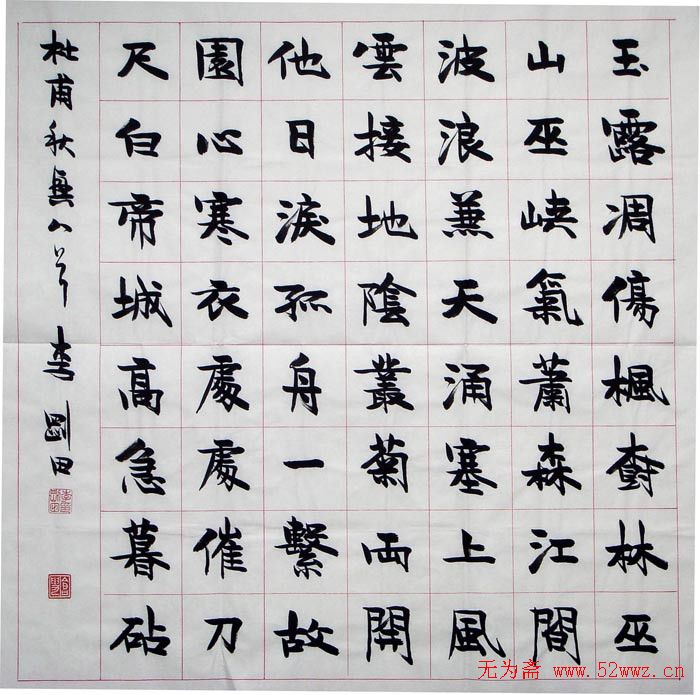 玉露凋傷楓樹林巫
山巫峽氣蕭森江間
波浪兼天涌塞上風
雲接地陰叢菊兩開
他日淚孤舟一繫故
園心寒衣處處催刀
尺白帝城高急暮砧
杜甫秋興八首 李剛田
无为斋 www.52wwz.cn